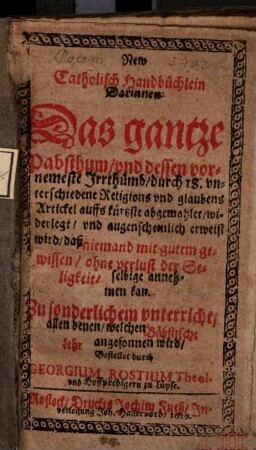 New
Catholisch Handbüchlein
Darinnen
Das gantze
Pabsthum/vnd dessen vor-
nemeste Jrrthümb/durch 18. vn-
terschiedene Religions vnd glaubens
Artickel auffs kürtzste abgemahlet/wi-
derlegt/ vnd augenscheinlich erweist
wird/daß niemand mit gutem ge-
wissen/ ohne verlust der Se-
ligkeit/ selbige anneh-
men kan.
Zu sonderlichem vnterricht/
allen denen/welchen Bäbstische
Lehr angesonnen wird/
Gestellet durch
GEORGIUM ROSTIUM Theol.
vnd Hoffpredigern zu Lüpse.
Rostock/ Druckts Jochim Fueß/ Jn
verlegung Joh. Hallervord/